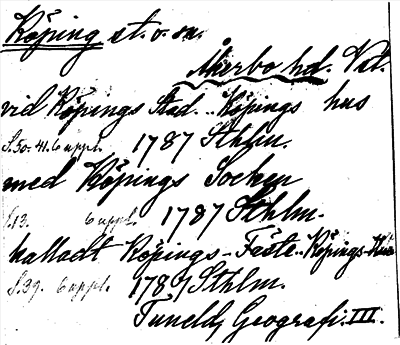 Köping st. o. sn.
Åkerbo hd. Vst.
vid Köpings Stad. Köpings hus
S. 50. 41. 6 uppl. 1787 Sthlm.
med Köpings Socken
S. 13. 6 uppl. 1787 Sthlm.
kalladt Köpings-Fäste. Köpings-Hus
S. 39. 6 uppl. 1787 Sthlm.
Tuneld, Geografi. III.